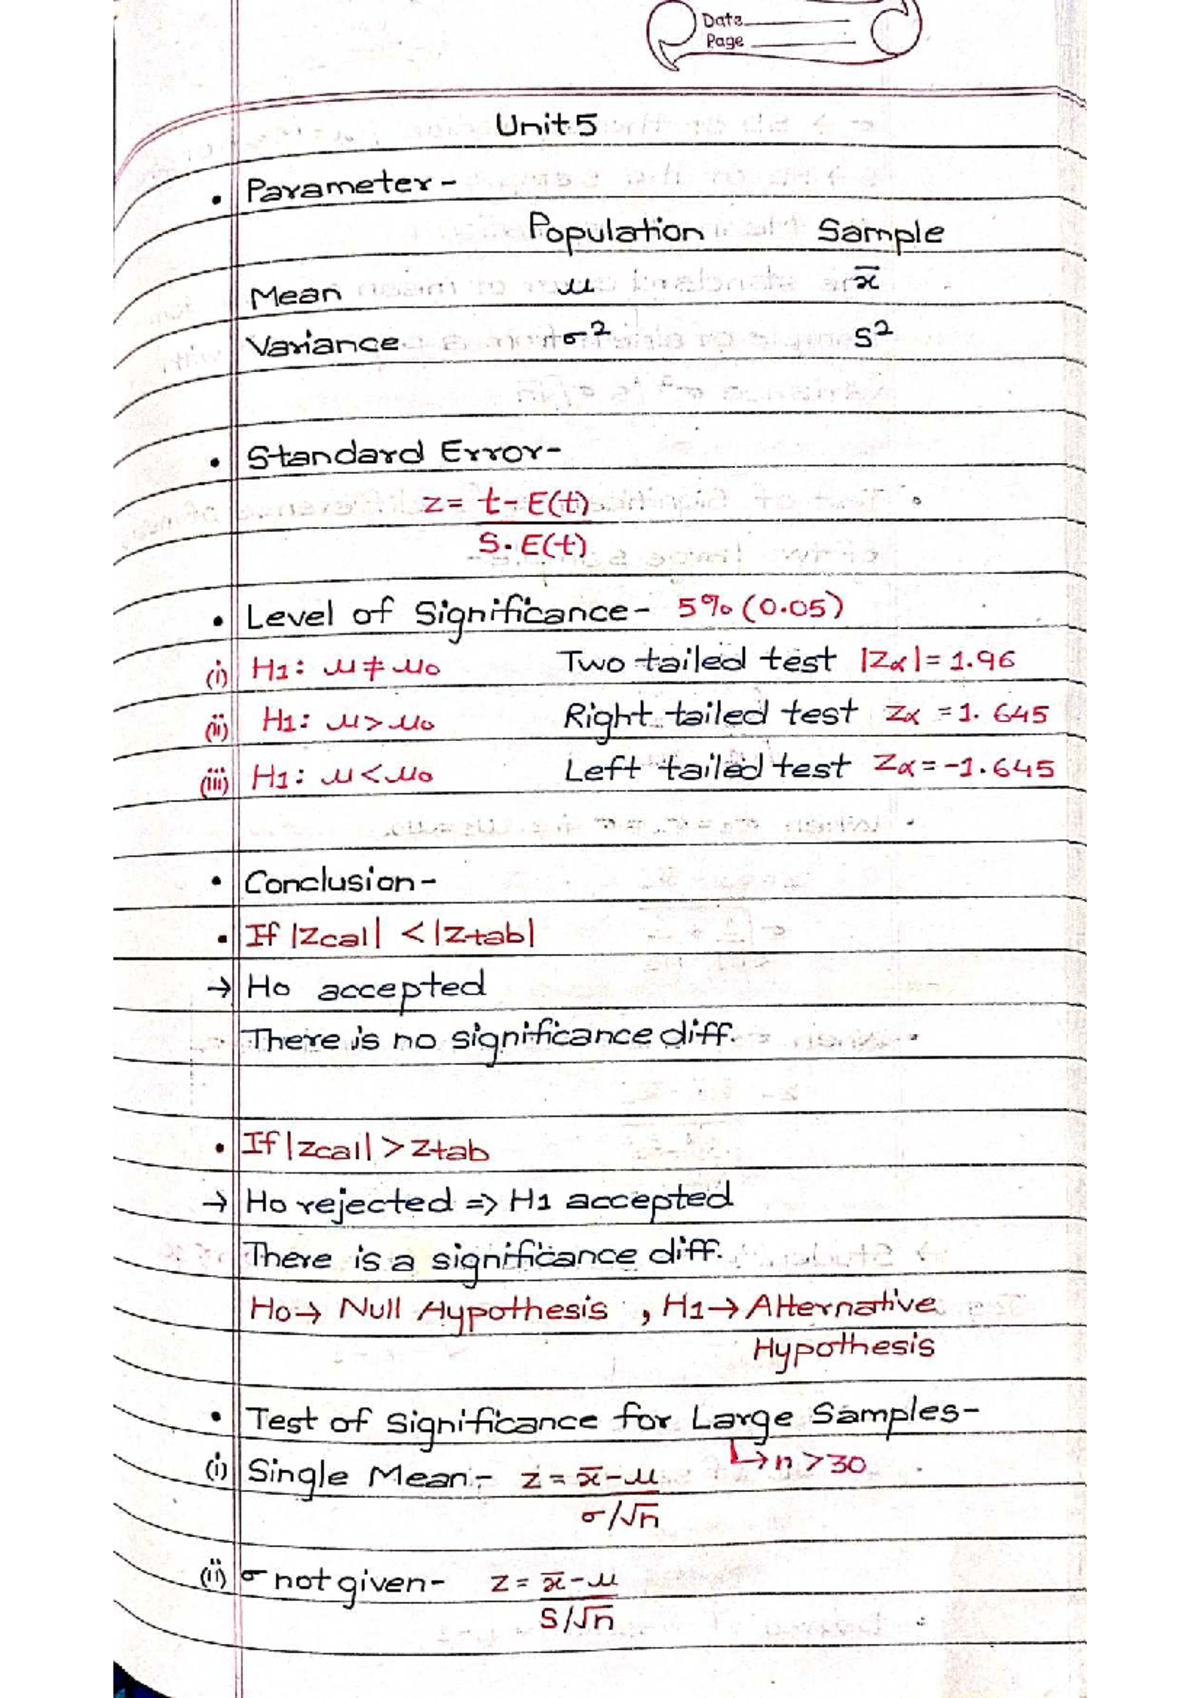 Date
Page
Unit 5
• Parameter -
Population Sample
Mean μ x̄
Variance σ² S²
• Standard Error -
z = t - E(t)
S.E(t)
• Level of Significance - 5% (0.05)
(i) H1: μ ≠ μ0 Two tailed test |Zα| = 1.96
(ii) H1: μ > μ0 Right tailed test Zα = 1.645
(iii) H1: μ < μ0 Left tailed test Zα = -1.645
• Conclusion -
• If |Zcal| < |Ztab|
→ H0 accepted
There is no significance diff.
• If |Zcal| > Ztab
→ H0 rejected => H1 accepted
There is a significance diff.
H0 → Null Hypothesis , H1 → Alternative
Hypothesis
• Test of Significance for Large Samples -
↳ n > 30
(i) Single Mean - z = x̄ - μ
σ/√n
(ii) σ not given - z = x̄ - μ
S/√n